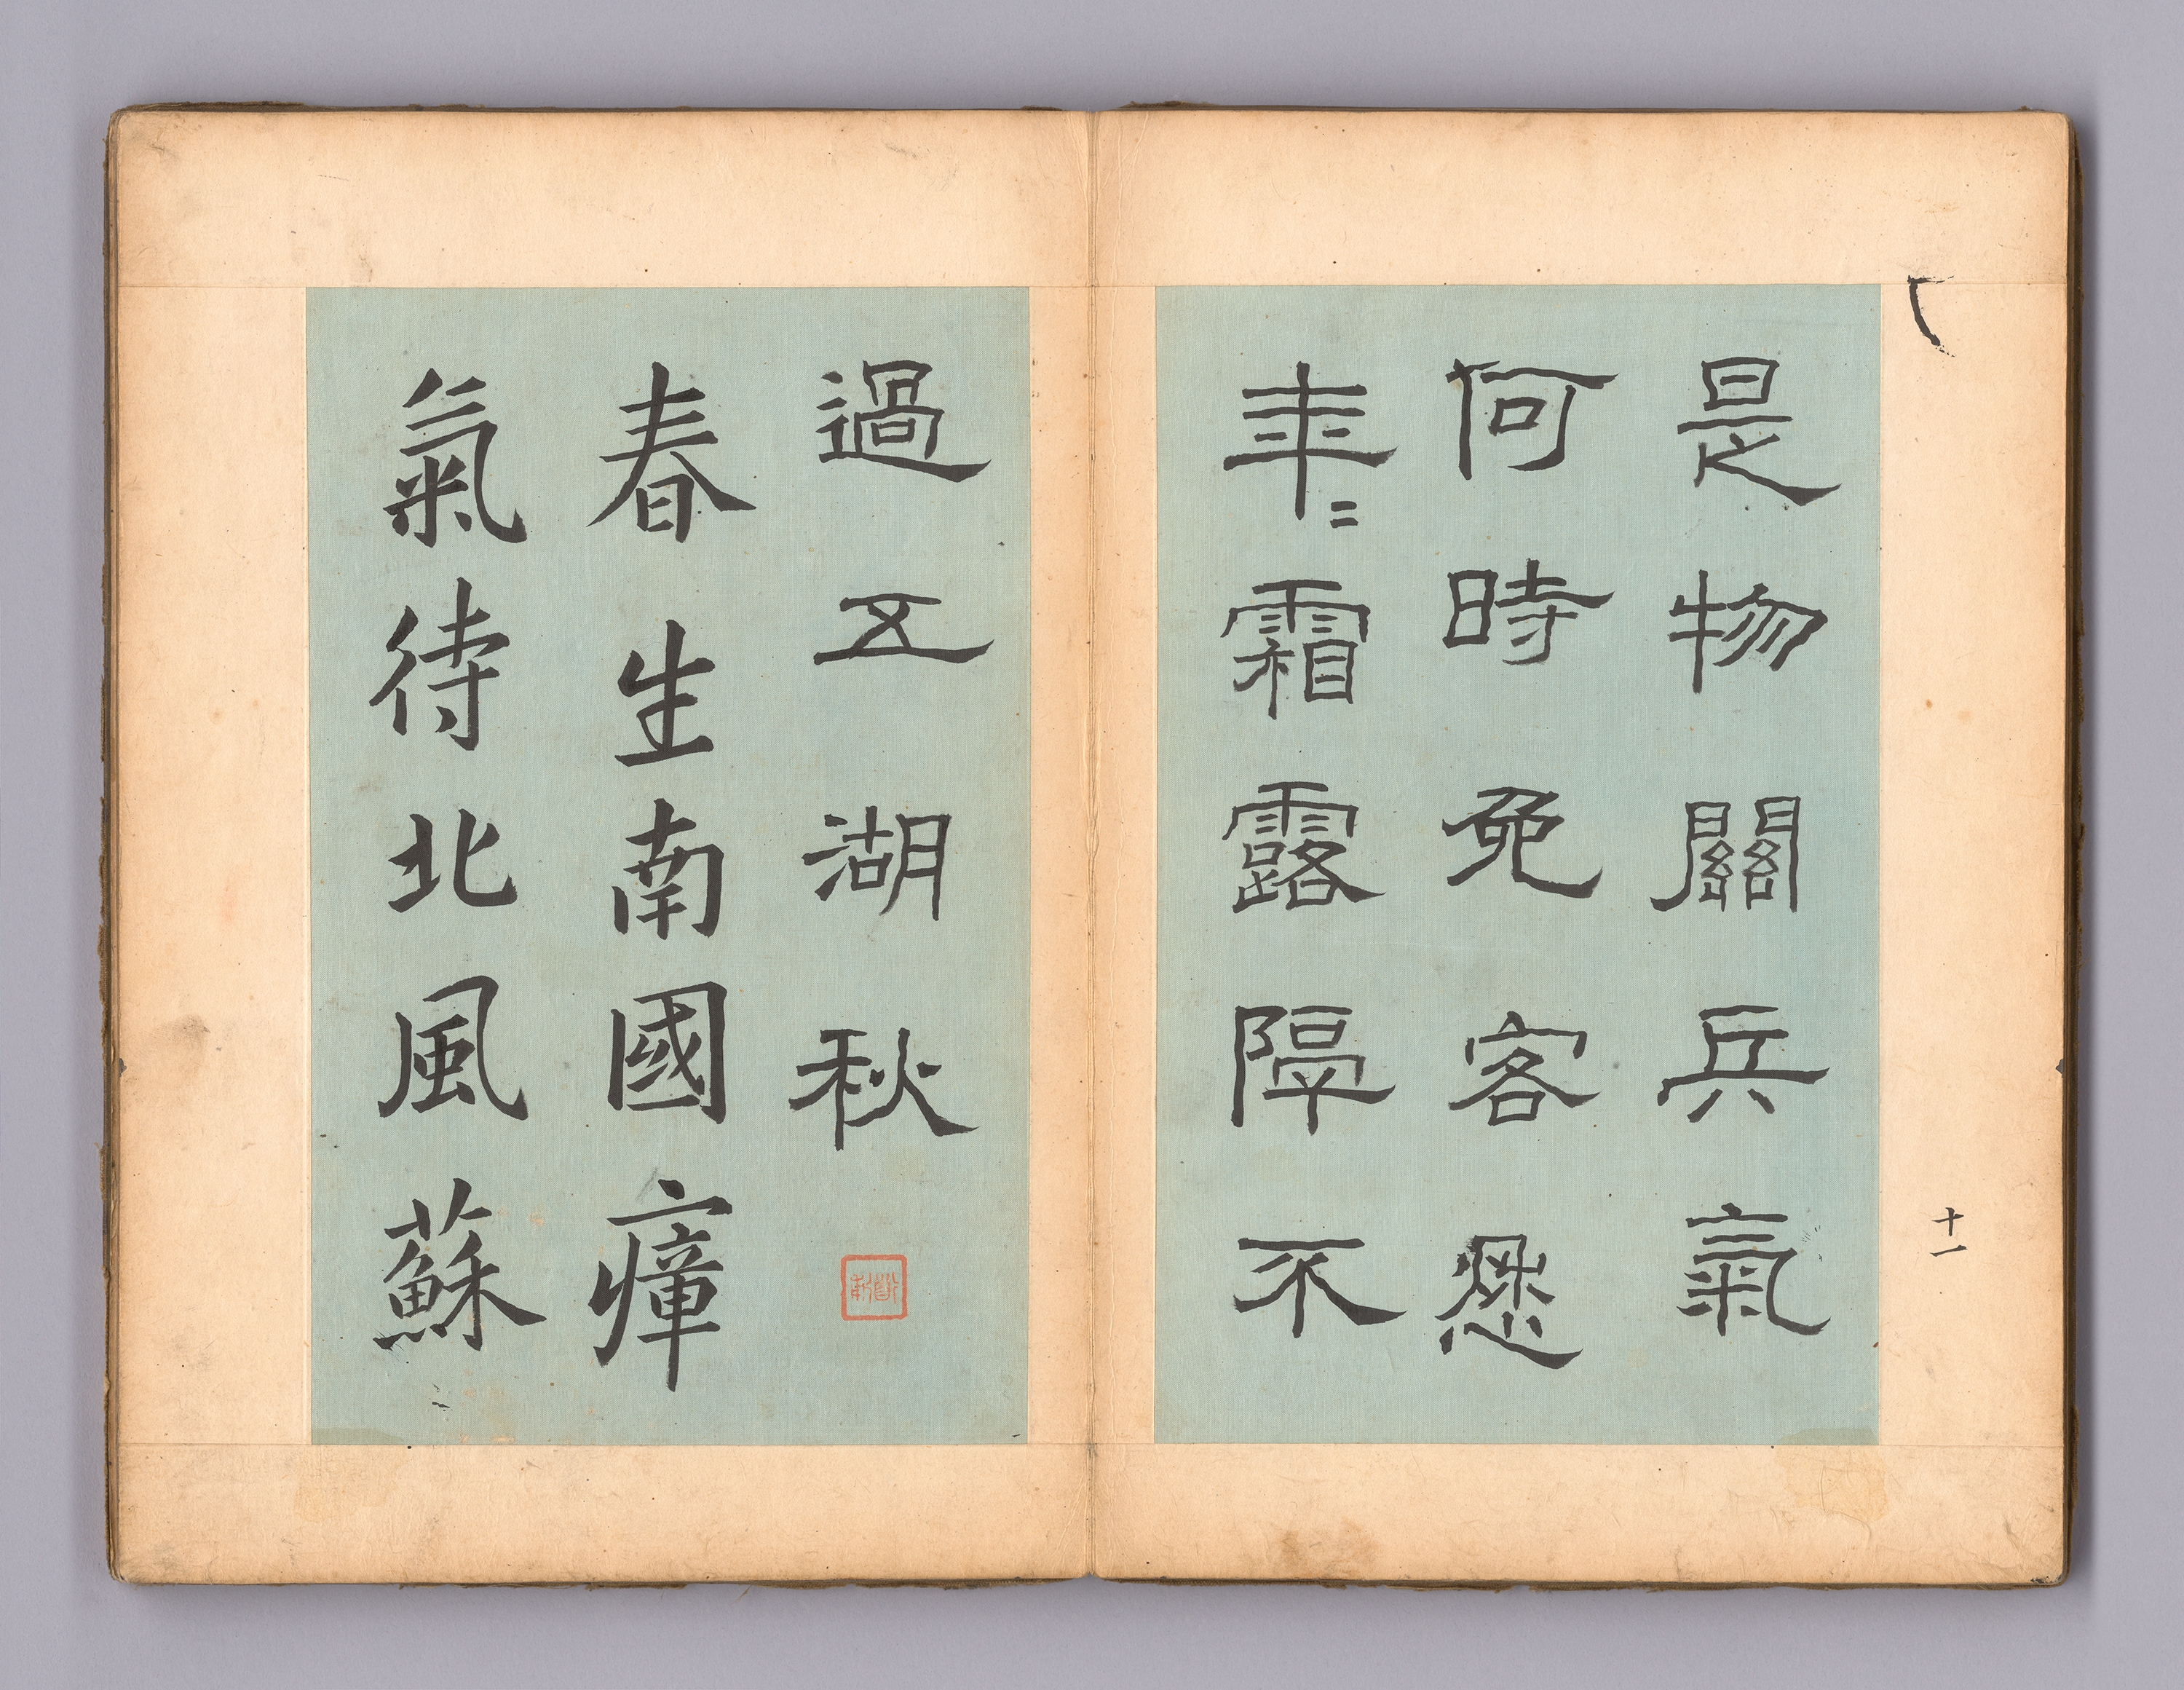 十一
是物關兵氣
何時免客愁
年〻霜露隔不
過五湖秋
春生南國瘴
氣待北風蘇